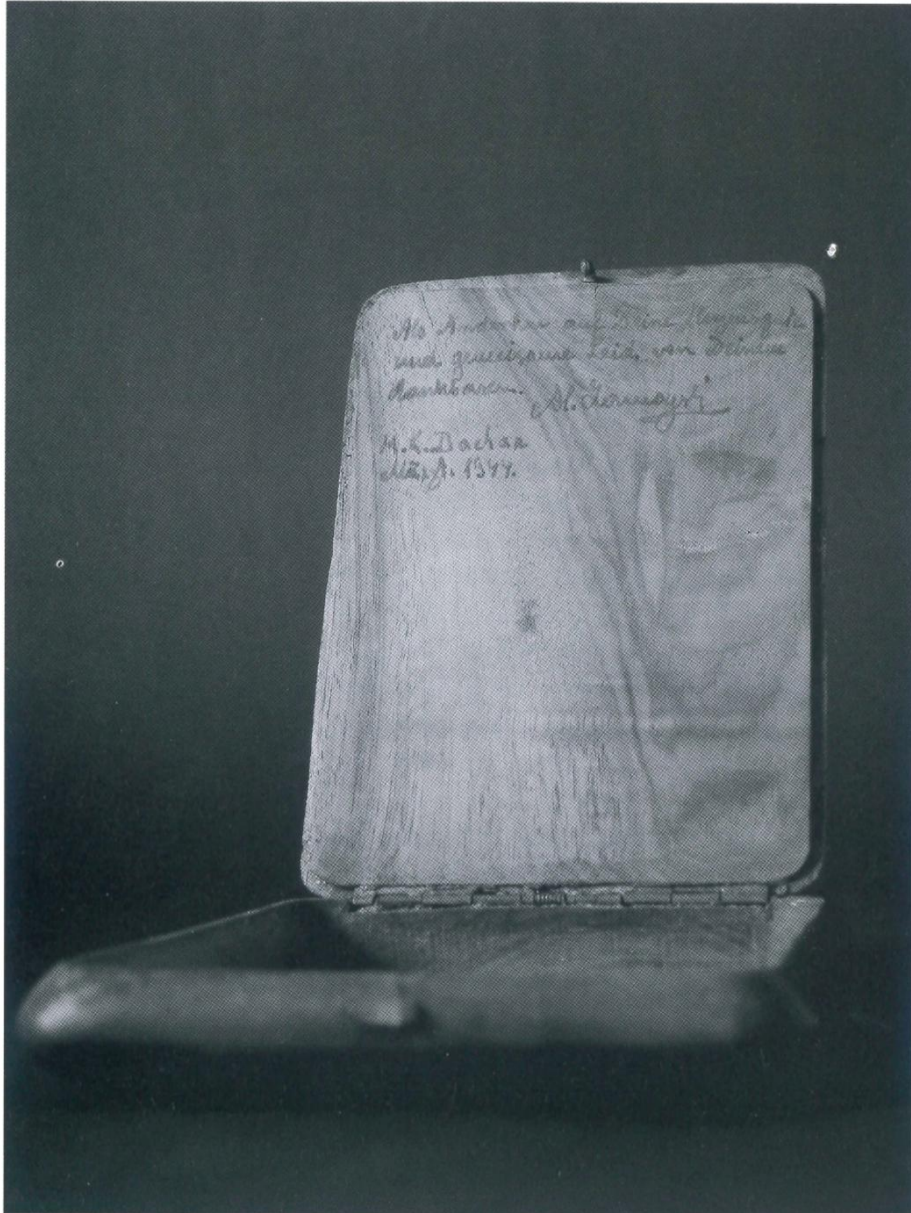 Als Andenken auf Deine
und gemeinsame Leid von Deinem
dankbaren.
K.L. Dachau
1944.